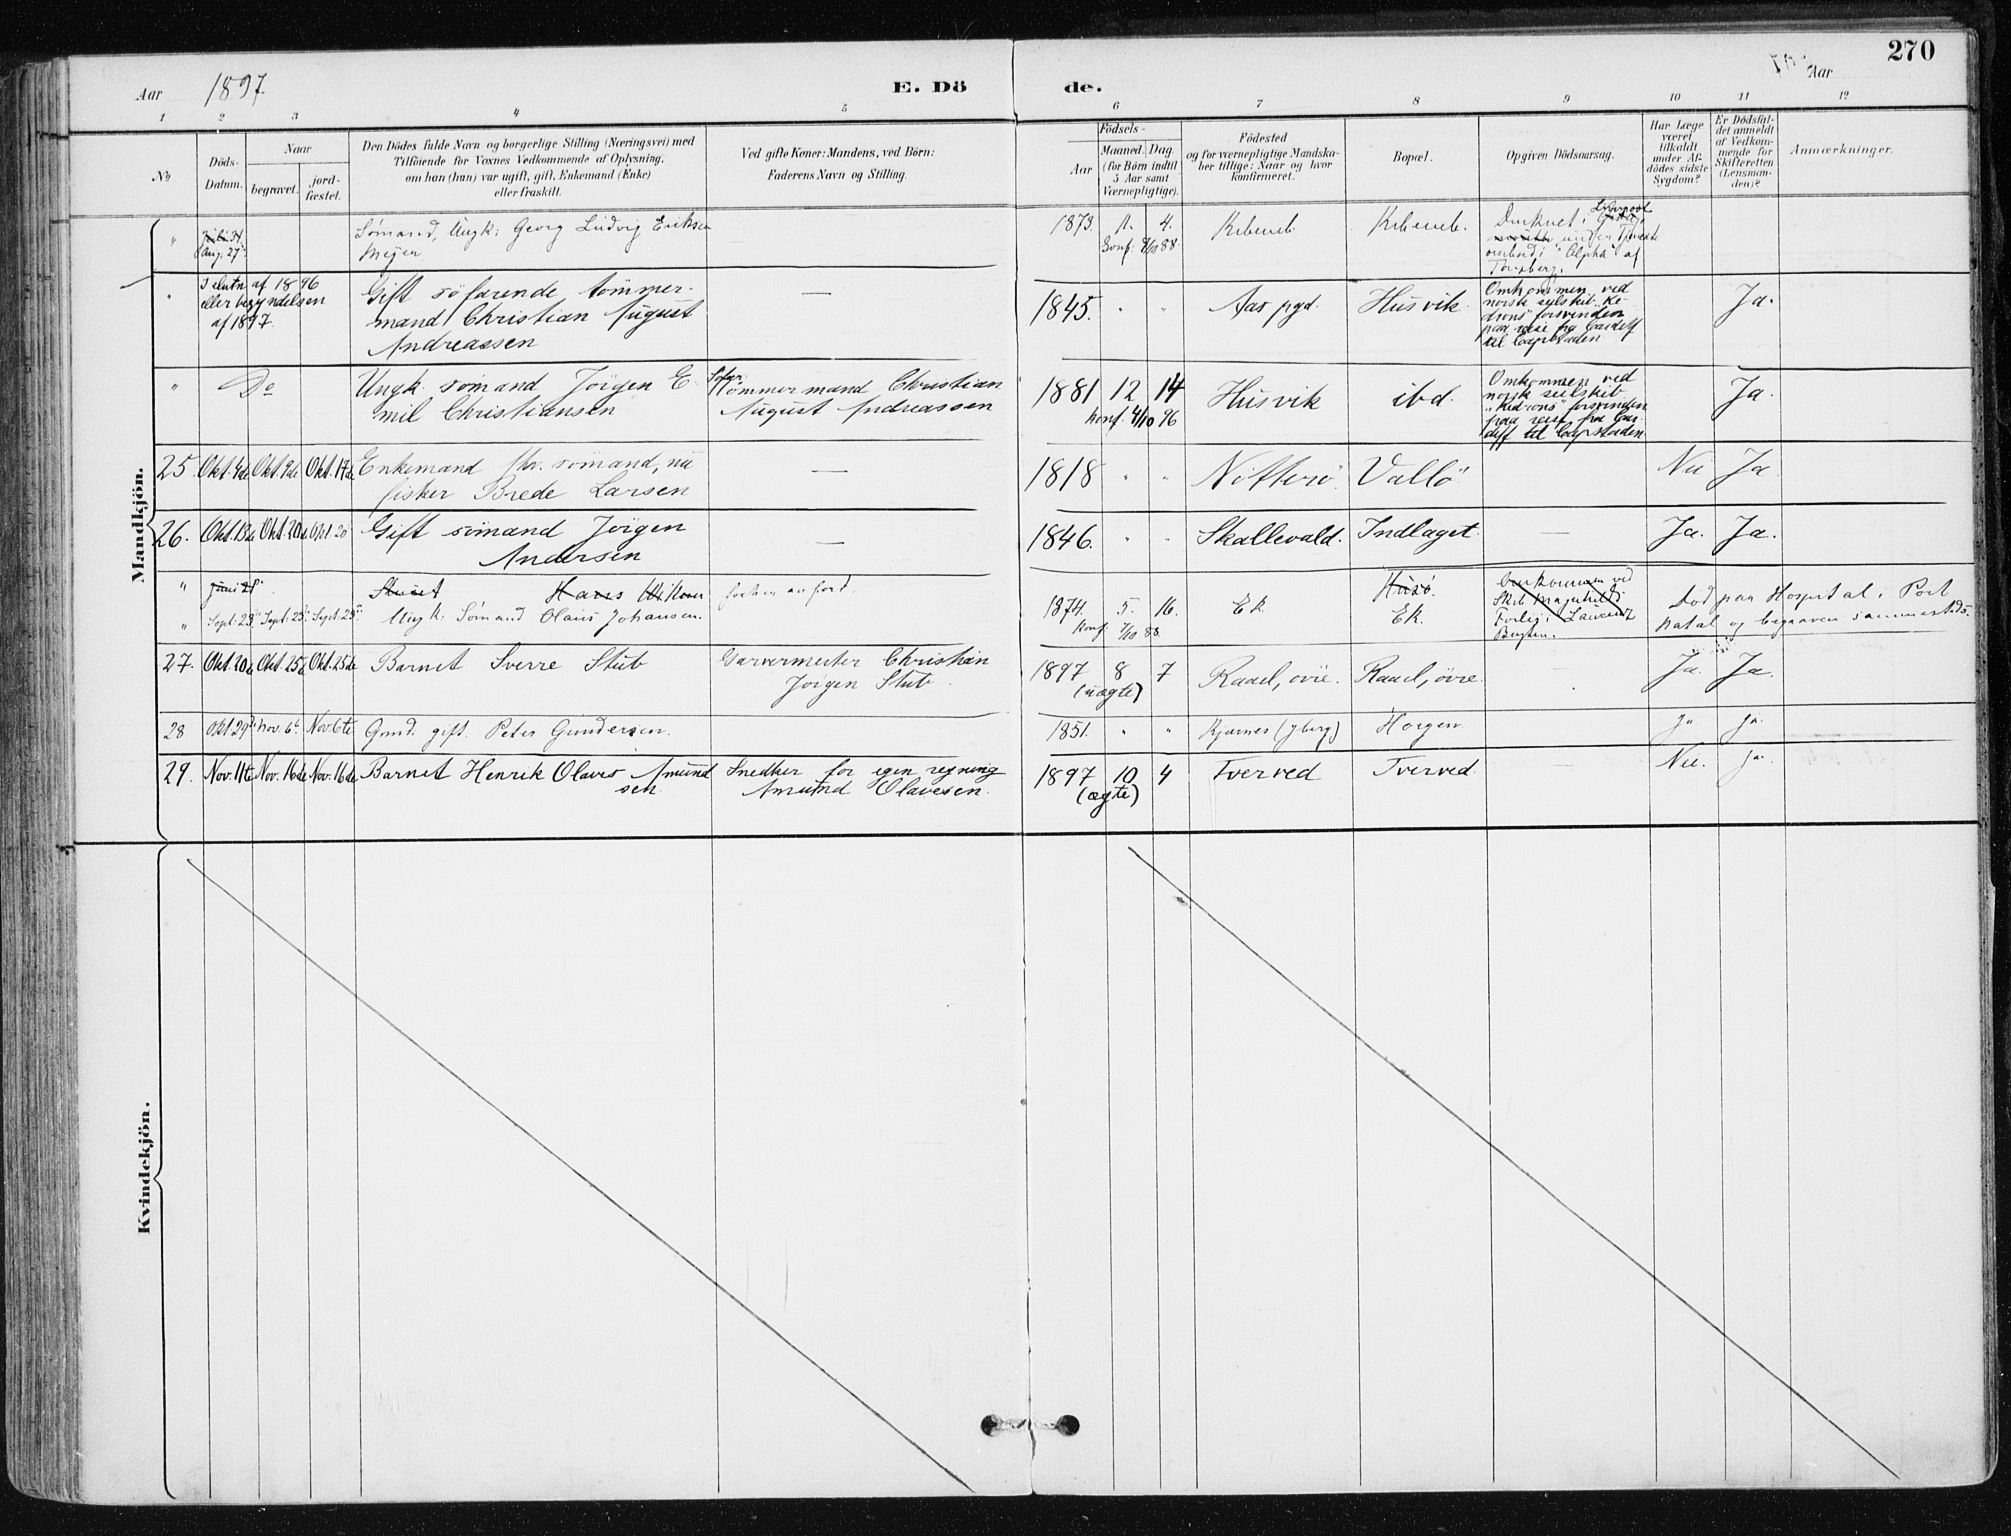 270
Aar 1897.
E. Dö de.
Aar
1 2 3 4 5 6 7 8 9 10 11 12
No
Döds-
Datum.
Naar
begravet.
jord-
fæstet.
Den Dödes fulde Navn og borgerlige Stilling (Næringsvei) med
Tilföiende for Voxnes Vedkommende af Oplysning,
om han (hun) var ugift, gift, Enkemand (Enke)
eller fraskilt.
Ved gifte Koner: Mandens, ved Börn:
Faderens Navn og Stilling.
Födsels-
Aar
Maaned. Dag.
(for Börn indtil
5 Aar samt
Værnepligtige).
Födested
og for værnepligtige Mandska-
ber tillige: Naar og hvor
konfirmeret.
Bopæl.
Opgiven Dödsaarsag.
Har Læge
været
tilkaldt
under Af-
dödes sidste
Sygdom?
Er Dödsfal-
det anmeldt
af Vedkom-
mende for
Skifteretten
(Lensman-
den)?
Anmærkninger.
Mandkjön.
" Aug. 27 Sömand, Ungk: Georg Ludvig Eriksen
Meyer
1873. 4.
Konf. 88.
Druknet i Liverpool
under
ombord i "Alpha" af
Tönsberg.
" I slutn af 1896
eller begyndelsen
af 1897.
Gift söfarende tömmer-
mand Christian August
Andreassen
—
1845. " " Aas pgd. Husvik
Omkommen ved
norsk seilskib "Ke-
drons" forsvinden
paa reise fra Cardiff
til Capstaden
Ja.
" Do Ungk. sömand Jörgen E-
mil Christiansen
Söfar.
tömmermand Christian
August Andreassen
1881 12 14
Konf. 4/10 96
Husvik ibd.
Omkommen ved
norsk seilskib
"Kedrons" forsvinden
paa reise fra Car-
diff til Capstaden
Ja.
25. Okt. 4de Okt. 9de Okt. 17de Enkemand fhv. sömand, nu
fisker Brede Larsen
—
1818 " " Nötterö Vallö Nei Ja
26. Okt. 13de Okt. 20de Okt 20 Gift sömand Jörgen
Andersen
—
1846. " " Skallevald. Indlaget. — Ja. Ja.
" Juni 21 Hans
" Sept. 23 Sept: 25 Sept: 25 Ungk. Sömand Olaus Johansen.
1874. 5. 16.
Konf. 7/10 88.
Ek Husö.
Ek.
Omkommen ved
Skib
Forlis i
Bugten.
Död paa Hospital i Port
Natal og begraven sammesteds.
27. Okt. 20de Okt. 25de Okt. 25de Barnet Sverre Stub Garvermester Christian
Jörgen Stub.
1897 8 7
(uægte)
Raael, övre. Raael, övre. Ja. Ja.
28 Okt. 29de Nov. 6te Nov. 6te Grmd. gift. Peter Gundersen.
1851. " " Kjærnes (yberg) Horgen. Ja ja.
29. Nov. 11te Nov. 16de Nov. 16de Barnet Henrik Olaves Amund
sen
Snedker for egen regning
Amund Olavesen.
1897 10 4
(ægte)
Tverved Tverved. — Nei. ja.
Kvindekjön.